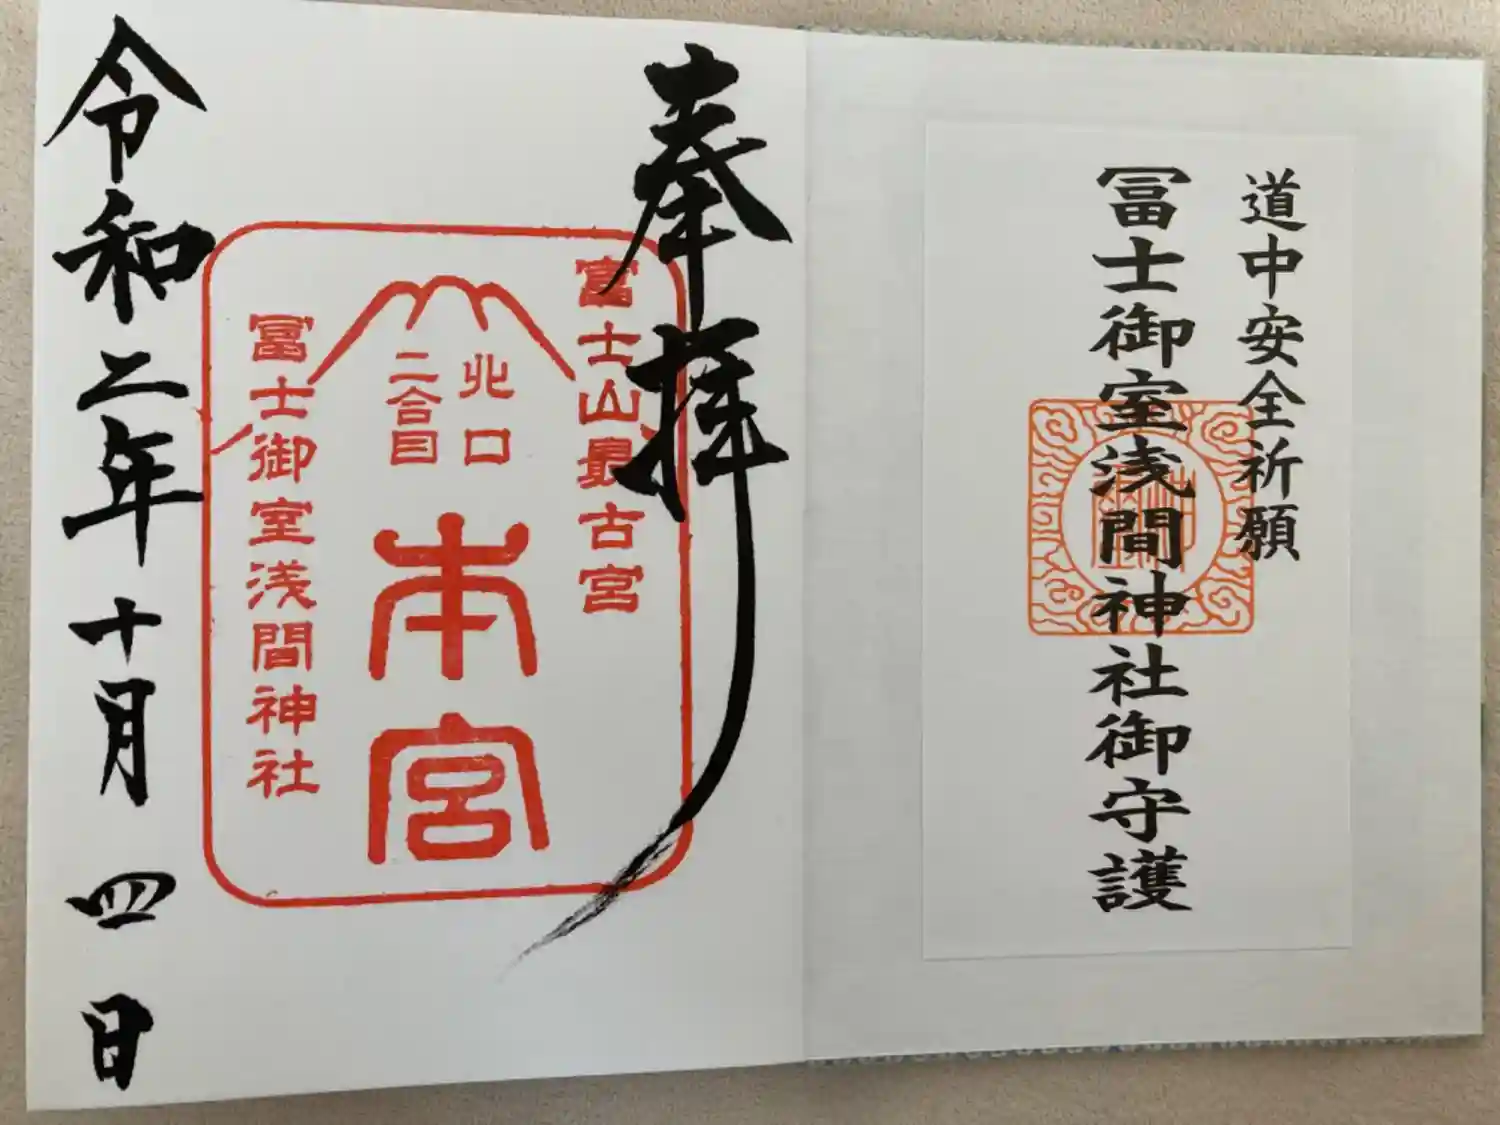 道中安全祈願
冨士御室浅間神社御守護
奉拝
富士山最古宮
北口
二合目
本宮
冨士御室浅間神社
令和二年十月四日